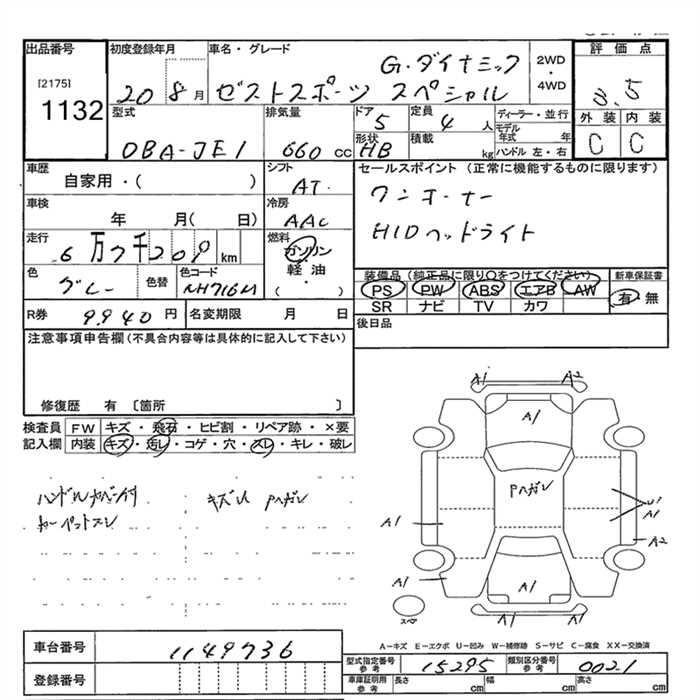 出品番号 初度登録年月 車名・グレード 評価点
[2175]
1132
20 8月 G・ダイナミック
ゼストスポーツ スペシャル
2WD
・
4WD
3.5
型式 排気量 ドア 定員 ディーラー・並行
DBA-JE1 660 cc 5 4 人
形状 積載 モデル年式 年
HB kg ハンドル 左・右
外装 内装
C C
車歴 シフト セールスポイント (正常に機能するものに限ります)
自家用・( ) AT
ワンオーナー
車検 冷房
年 月( 日) AAC
HIDヘッドライト
走行 燃料
6万7千209 km ガソリン
軽油
( )
色 色替 色コード
グレー NH716M
装備品 (純正品に限り○をつけてください) 新車保証書
PS PW ABS エアB AW 有・無
SR ナビ TV カワ
R券 9940 円 名変期限 月 日
後日品
注意事項申告欄 (不具合内容等は具体的に記入して下さい)
修復歴 有 [箇所 ]
検査員 FW キズ・飛石・ヒビ割・リペア跡・×要
記入欄 内装 キズ・汚レ・コゲ・穴・スレ・キレ・破レ
ハンドルカバー付 キズレ Pハガレ
カーペットスレ
A1 A2
A1
Pハガレ
U1
A1
A1
A2
A1
A1
A1 A1
スペア
A-キズ E-エクボ U-凹み W-補修跡 S-サビ C-腐食 XX-交換済
車台番号 1149736
登録番号
型式指定番号 参考 15295 類別区分番号 参考 0021
車庫証明用 参考 長さ cm 幅 cm 高さ cm